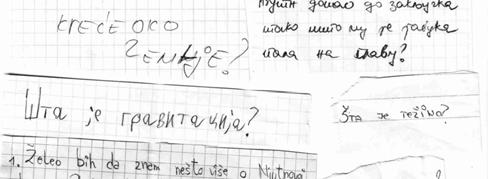 KREĆE OKO
ZEMLJE?
дошао до закључка
тако што му је јабука
пала на главу?
Шта је гравитација?
Šta je težina?
1. Želeo bih da znam nešto više o Njutnovoj